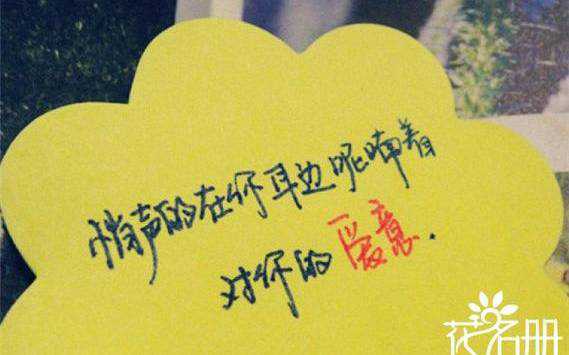 悄声的在你耳边呢喃着
对你的爱意.
花名册